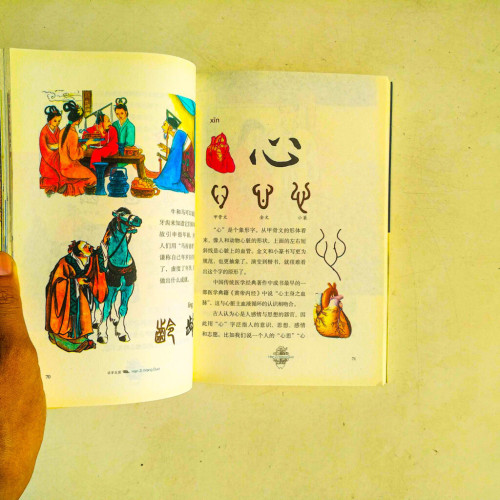 牛和马可以
故引申指年龄
谦称自己年
了，虚度了年
龄
70
xīn
心
甲骨文 金文 小篆
“心”是个象形字。从甲骨文的形体看
来，像人和动物心脏的形状，上面的左右短
斜线是心脏上的血管。金文和小篆书写更为
规范，也更抽象了。演变到楷书，就很难看
出这个字的原形了。
中国传统医学经典著作中成书最早的一
部医学典籍《黄帝内经》中说“心主身之血
脉”，这与心脏主血液循环的认识相吻合。
古人认为心是人感情与思想的器官，因
此用“心”字泛指人的意识、思想、感情
和志愿。比如我们说一个人的“心思”“心
71